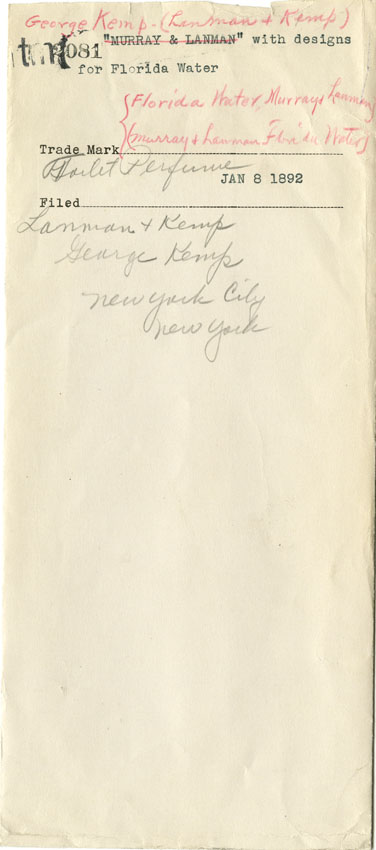 George Kemp - (Lanman & Kemp)
2081 "MURRAY & LANMAN" with designs
for Florida Water
{Florida Water, Murray & Lanman}
{Murray & Lanman Flori'da Water}
Trade Mark
Toilet Perfume
JAN 8 1892
Filed
Lanman & Kemp
George Kemp
New York City
New York